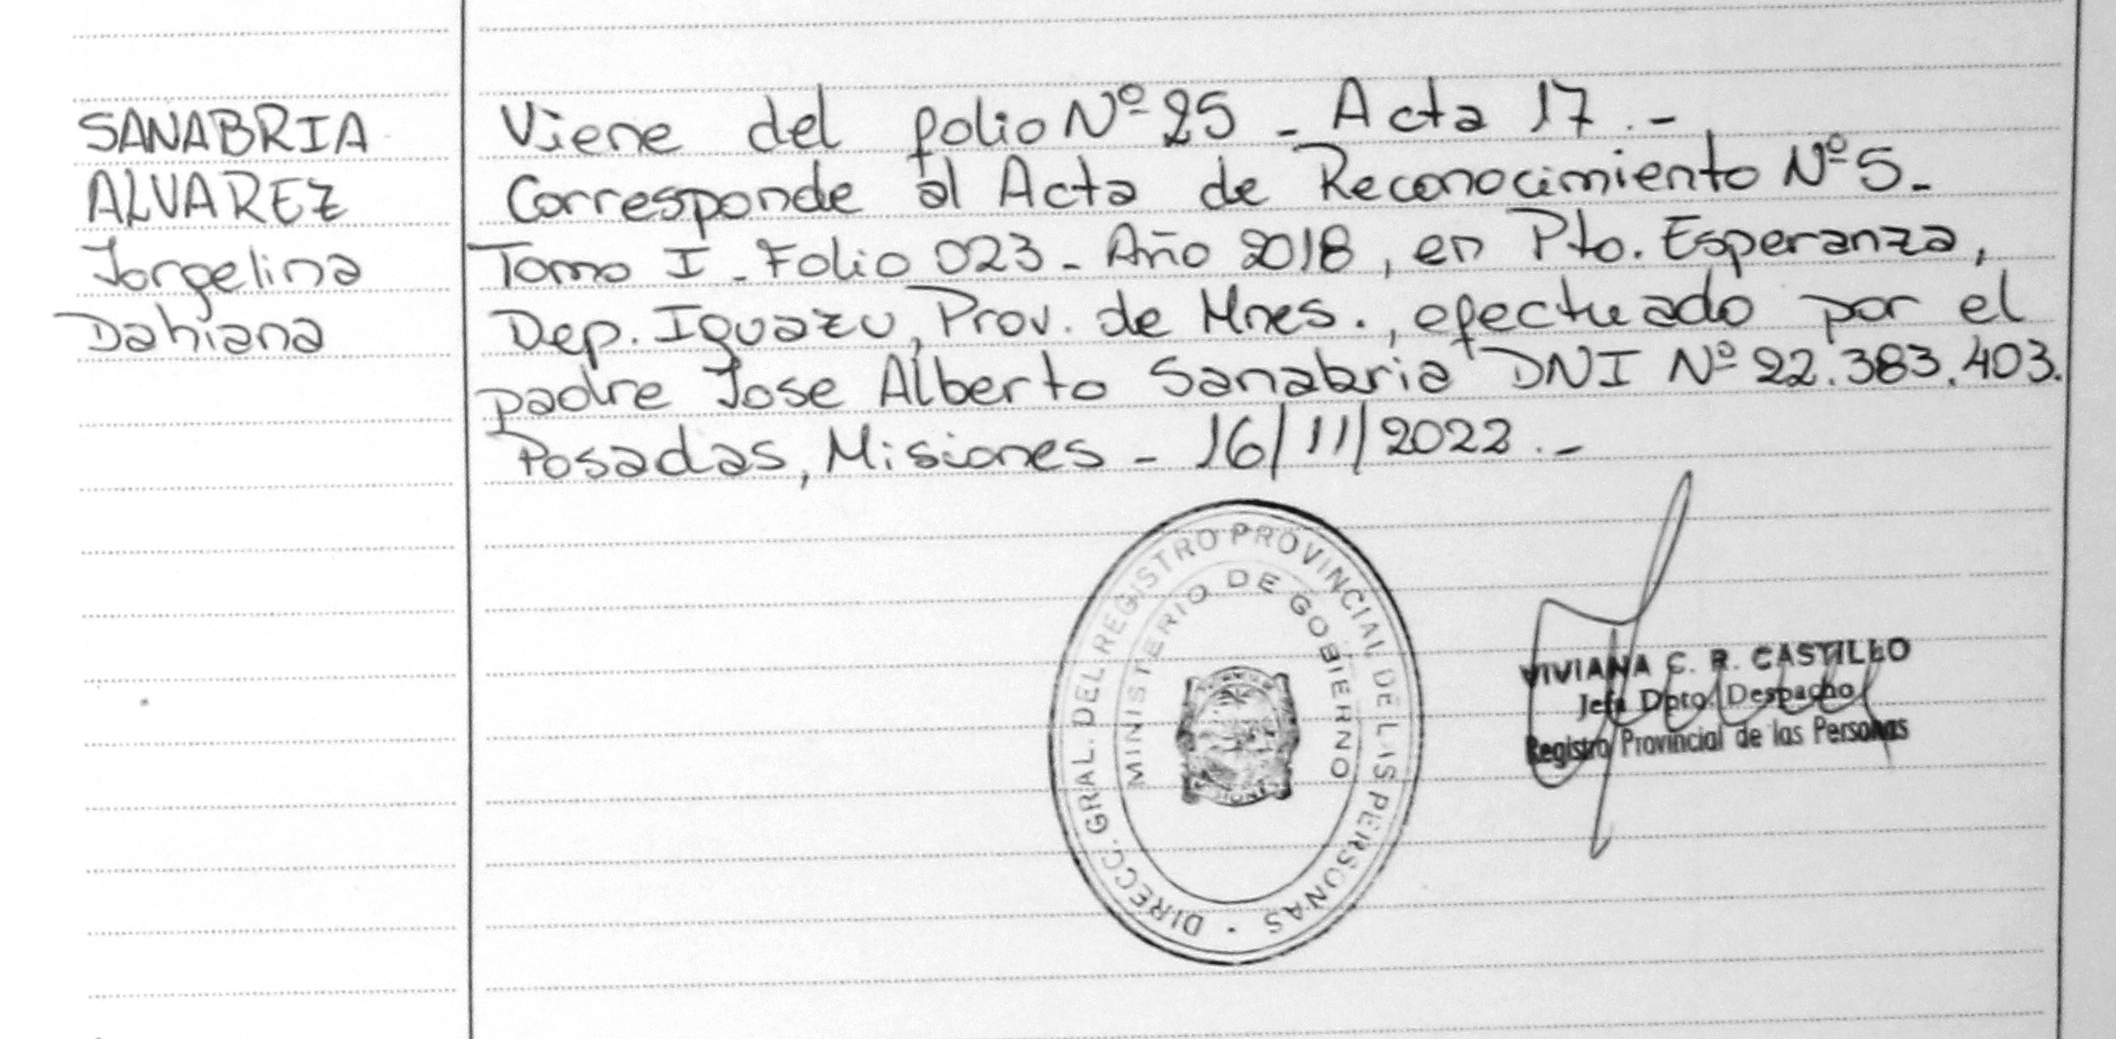 SANABRIA
ALVAREZ
Jorgelina
Dahiana
Viene del folio Nº 25 - Acta 17.-
Corresponde al Acta de Reconocimiento Nº 5-
Tomo I - Folio 023 - Año 2018, en Pto. Esperanza,
Dep. Iguazu, Prov. de Mnes., efectuado por el
padre Jose Alberto Sanabria DNI Nº 22.383.403.
Posadas, Misiones - 16/11/2022.-
DIRECC. GRAL. DEL REGISTRO PROVINCIAL DE LAS PERSONAS
MINISTERIO DE GOBIERNO
VIVIANA C. R. CASTILLO
Jefa Dpto. Despacho
Registro Provincial de las Personas